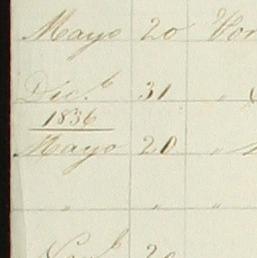 Mayo 20 Vor
Dic.e 31 "
1836
Mayo 20 "
" " "
20